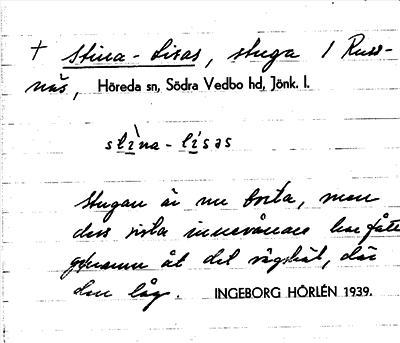 † Stina-Lisas, stuga i Russ-
näs, Höreda sn, Södra Vedbo hd, Jönk. l.
stìna-lísəs
Stugan är nu borta, men
dess sista innevånare har fått
ge namn åt det vägskäl, där
den låg. INGEBORG HÖRLÉN 1939.